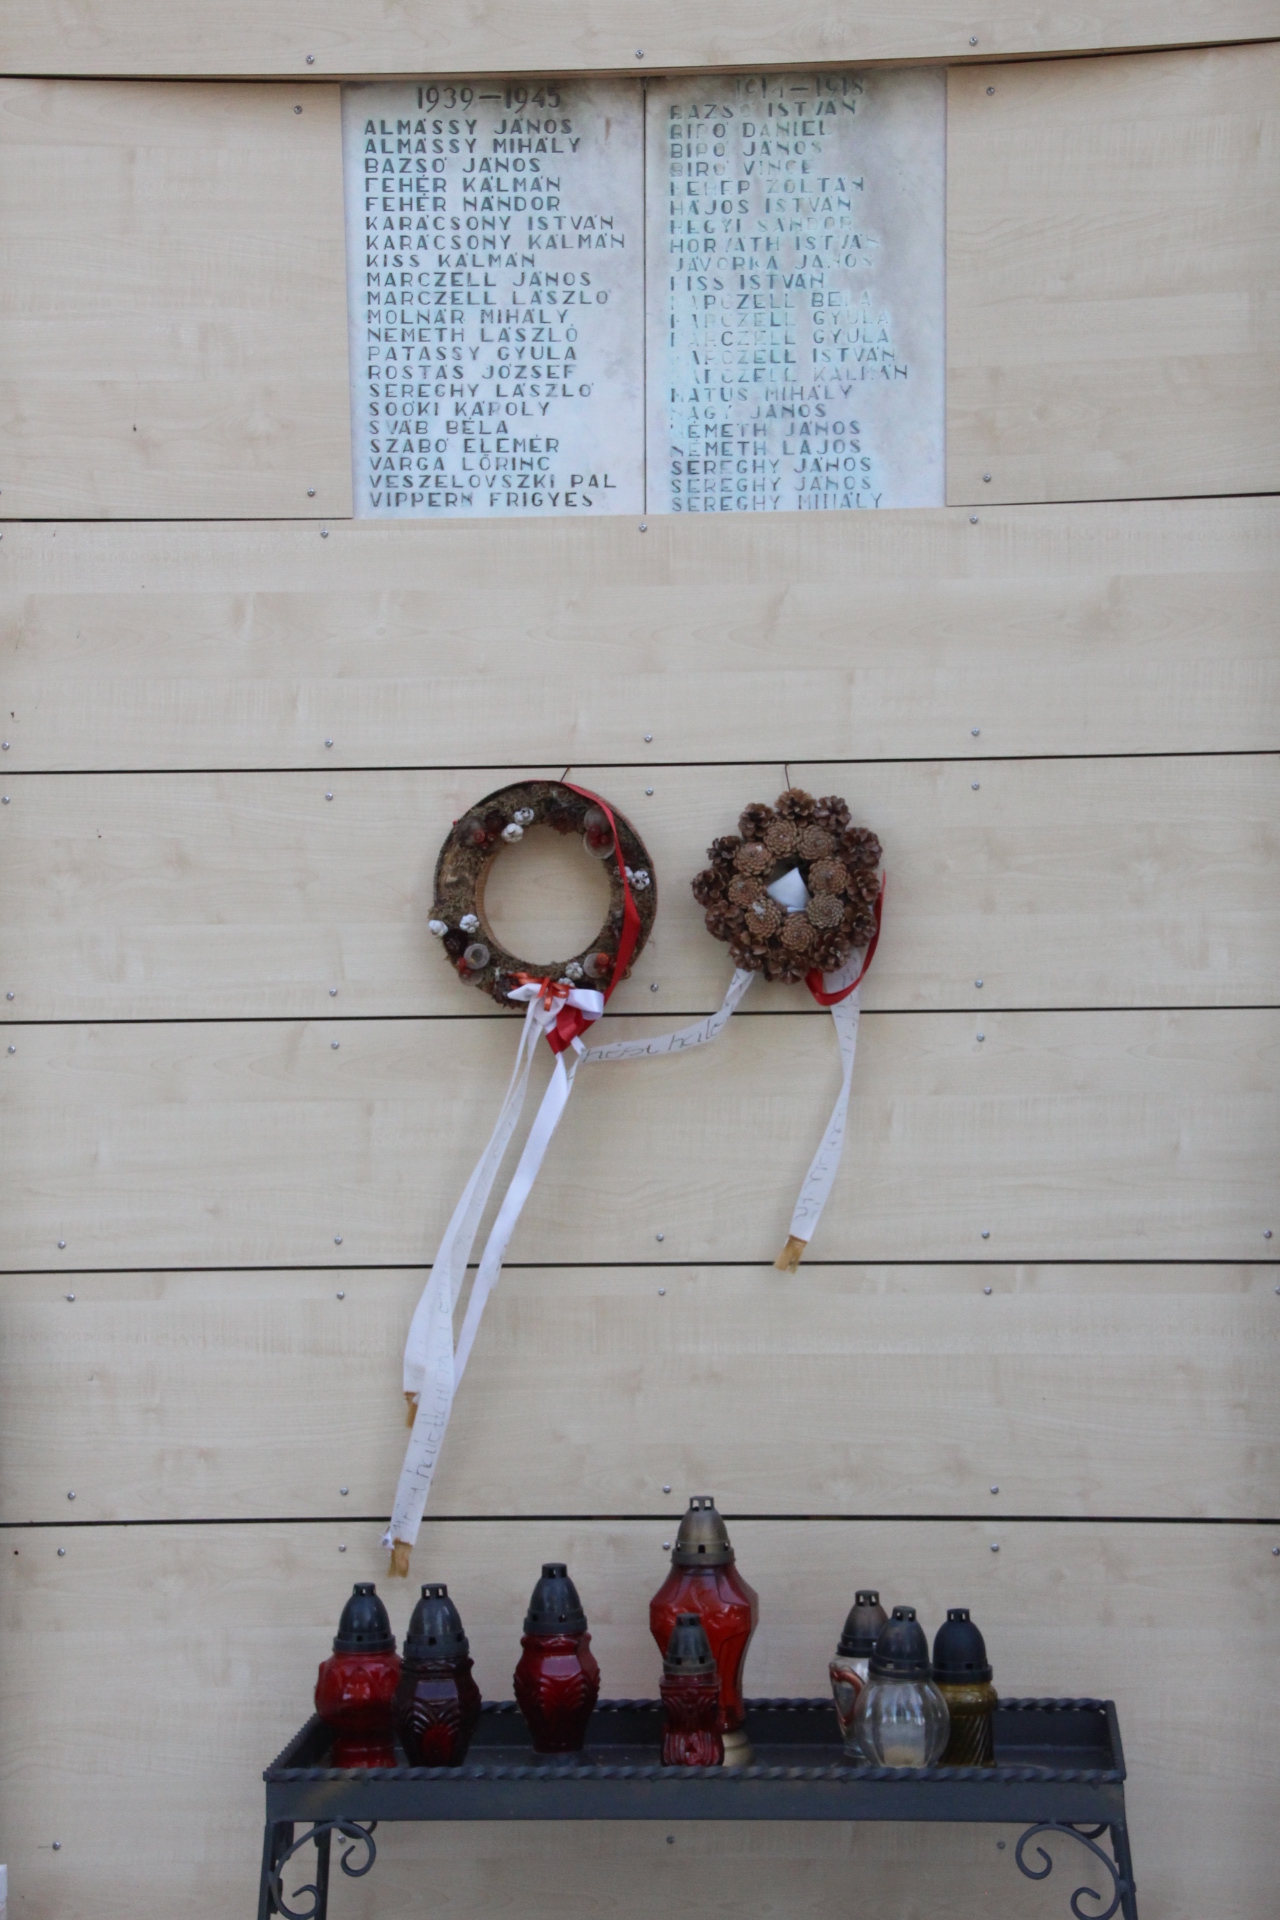 1939–1945
ALMÁSSY JÁNOS
ALMÁSSY MIHÁLY
BAZSÓ JÁNOS
FEHÉR KÁLMÁN
FEHÉR NÁNDOR
KARÁCSONY ISTVÁN
KARÁCSONY KÁLMÁN
KISS KÁLMÁN
MARCZELL JÁNOS
MARCZELL LÁSZLÓ
MOLNÁR MIHÁLY
NÉMETH LÁSZLÓ
PATASSY GYULA
ROSTÁS JÓZSEF
SEREGHY LÁSZLÓ
SOÓKI KÁROLY
SVÁB BÉLA
SZABÓ ELEMÉR
VARGA LŐRINC
VESZELOVSZKI PÁL
VIPPERN FRIGYES
1914–1918
BAZSÓ ISTVÁN
BIRÓ DÁNIEL
BIRÓ JÁNOS
BIRÓ VINCE
FEHÉR ZOLTÁN
HAJOS ISTVÁN
HEGYI SÁNDOR
HORVÁTH ISTVÁN
JÁVORKA JÁNOS
KISS ISTVÁN
MARCZELL BÉLA
MARCZELL GYULA
MARCZELL GYULA
MARCZELL ISTVÁN
MARCZELL KÁLMÁN
MATUS MIHÁLY
NAGY JÁNOS
NÉMETH JÁNOS
NÉMETH LAJOS
SEREGHY JÁNOS
SEREGHY JÁNOS
SEREGHY MIHÁLY